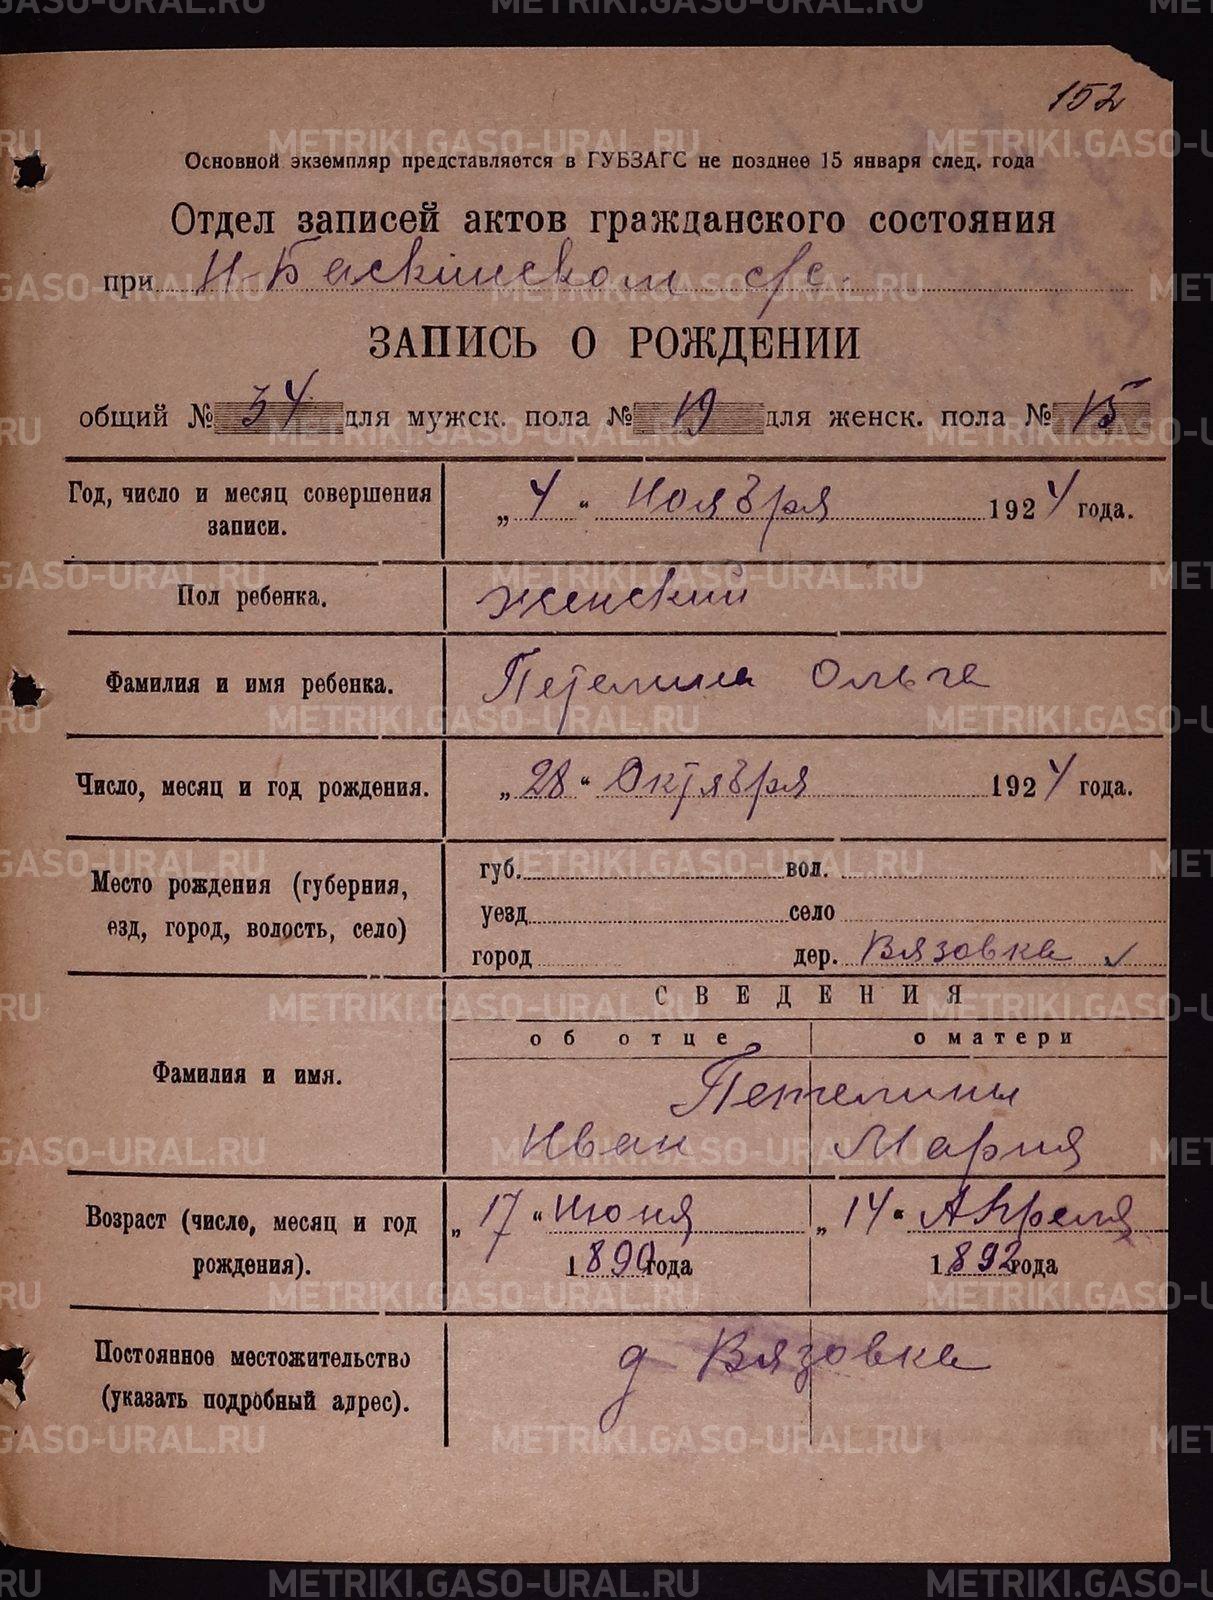 152
Основной экземпляр представляется в ГУБЗАГС не позднее 15 января след. года
Отдел записей актов гражданского состояния
при Н-Баскинском с/с.
ЗАПИСЬ О РОЖДЕНИИ
общий № 34 для мужск. пола № 19 для женск. пола № 15
Год, число и месяц совершения записи.
„ 4 “ Ноября 1924 года.
Пол ребенка.
женский
Фамилия и имя ребенка.
Петелина Ольга
Число, месяц и год рождения.
„ 28 “ Октября 1924 года.
Место рождения (губерния,
езд, город, волость, село)
губ. вол.
уезд село
город дер. Вязовка ✓
СВЕДЕНИЯ
об отце о матери
Фамилия и имя.
Петелины
Иван Мария
Возраст (число, месяц и год
рождения).
„ 17 “ Июня „ 14 “ Апреля
1890 года 1892 года
Постоянное местожительство
(указать подробный адрес).
д Вязовка
METRIKI.GASO-URAL.RU